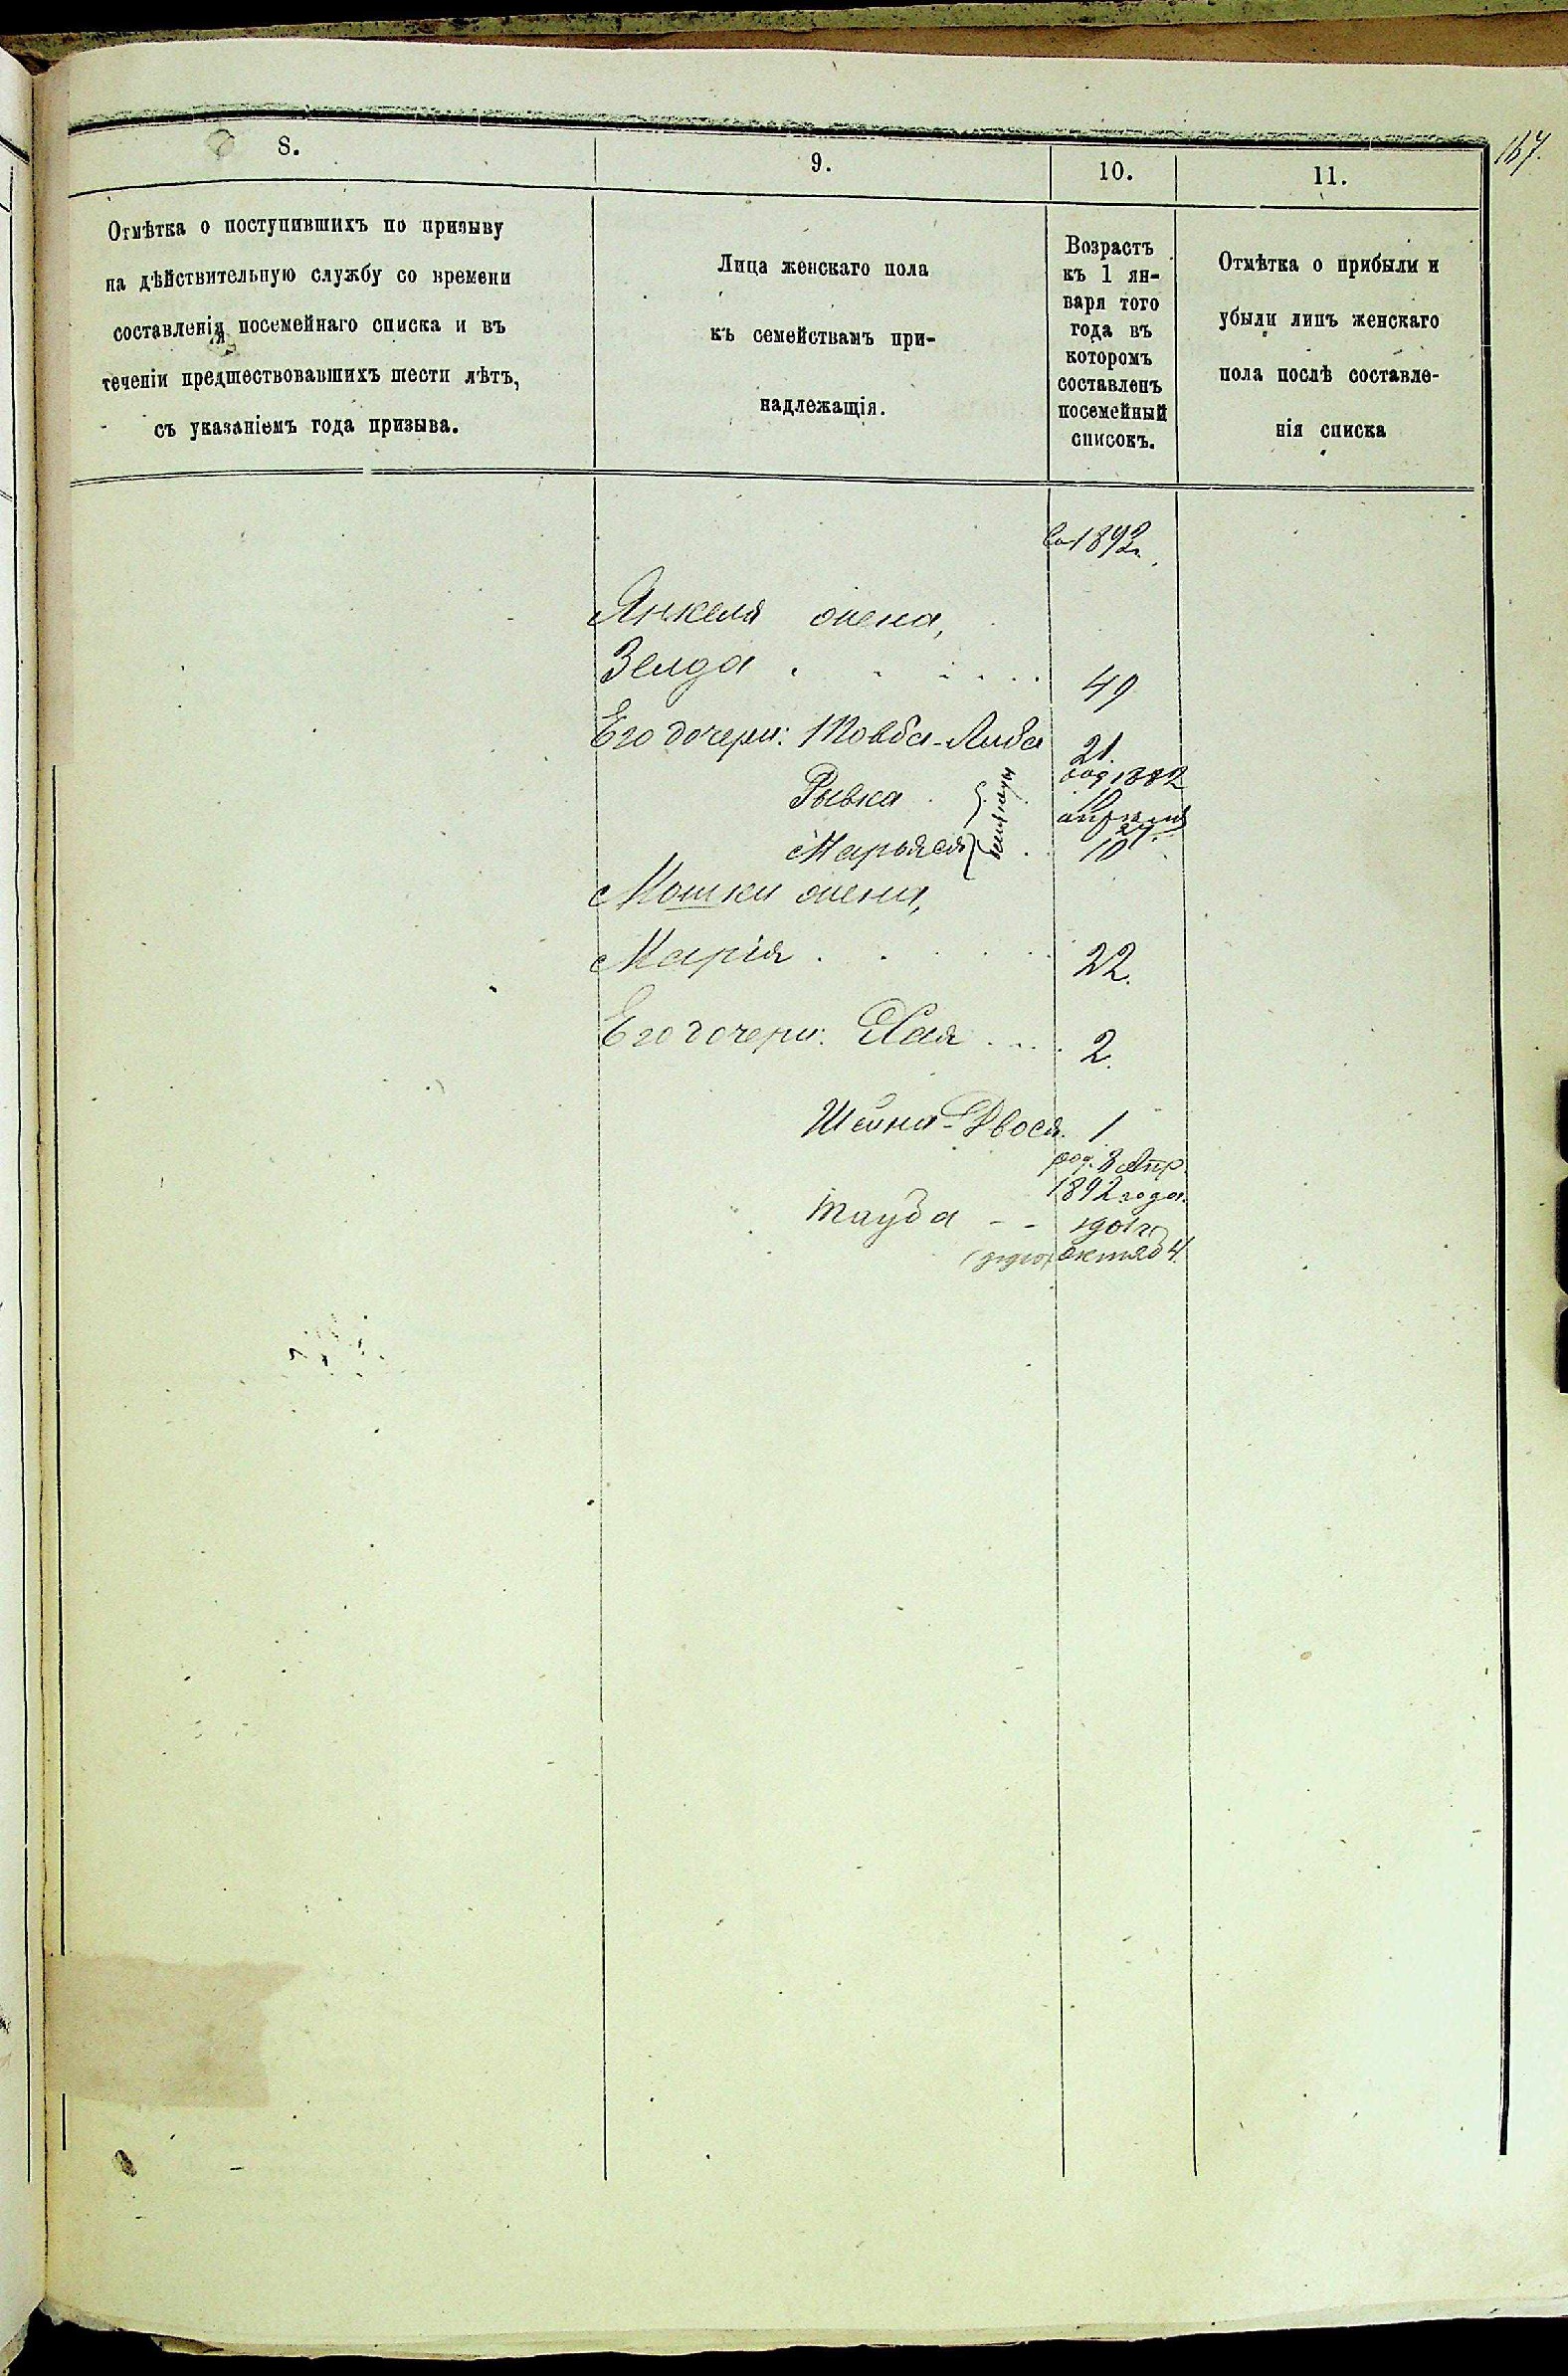 167.
8.
9.
10.
11.
Отмѣтка о поступившихъ по призыву
на дѣйствительную службу со времени
составленія посемейнаго списка и въ
теченіи предшествовавшихъ шести лѣтъ,
съ указаніемъ года призыва.
Лица женскаго пола
къ семействамъ при-
надлежащія.
Возрастъ
къ 1 ян-
варя того
года въ
которомъ
составленъ
посемейный
списокъ.
Отмѣтка о прибыли и
убыли лицъ женскаго
пола послѣ составле-
нія списка
1892
Янкеля жена,
Зелда . . . . . 49
Его дочери: Товба-Либа 21.
Рывка . род 1882 апрѣля 27
Марьяся . . 10
близнецы
Мошки жена,
Марія . . . . . 22.
Его дочери: Хая . . . . 2.
Шейна-Двося. 1
род. 8 Апр.
1892 года.
Тауба - - 1901 г
октяб 4.